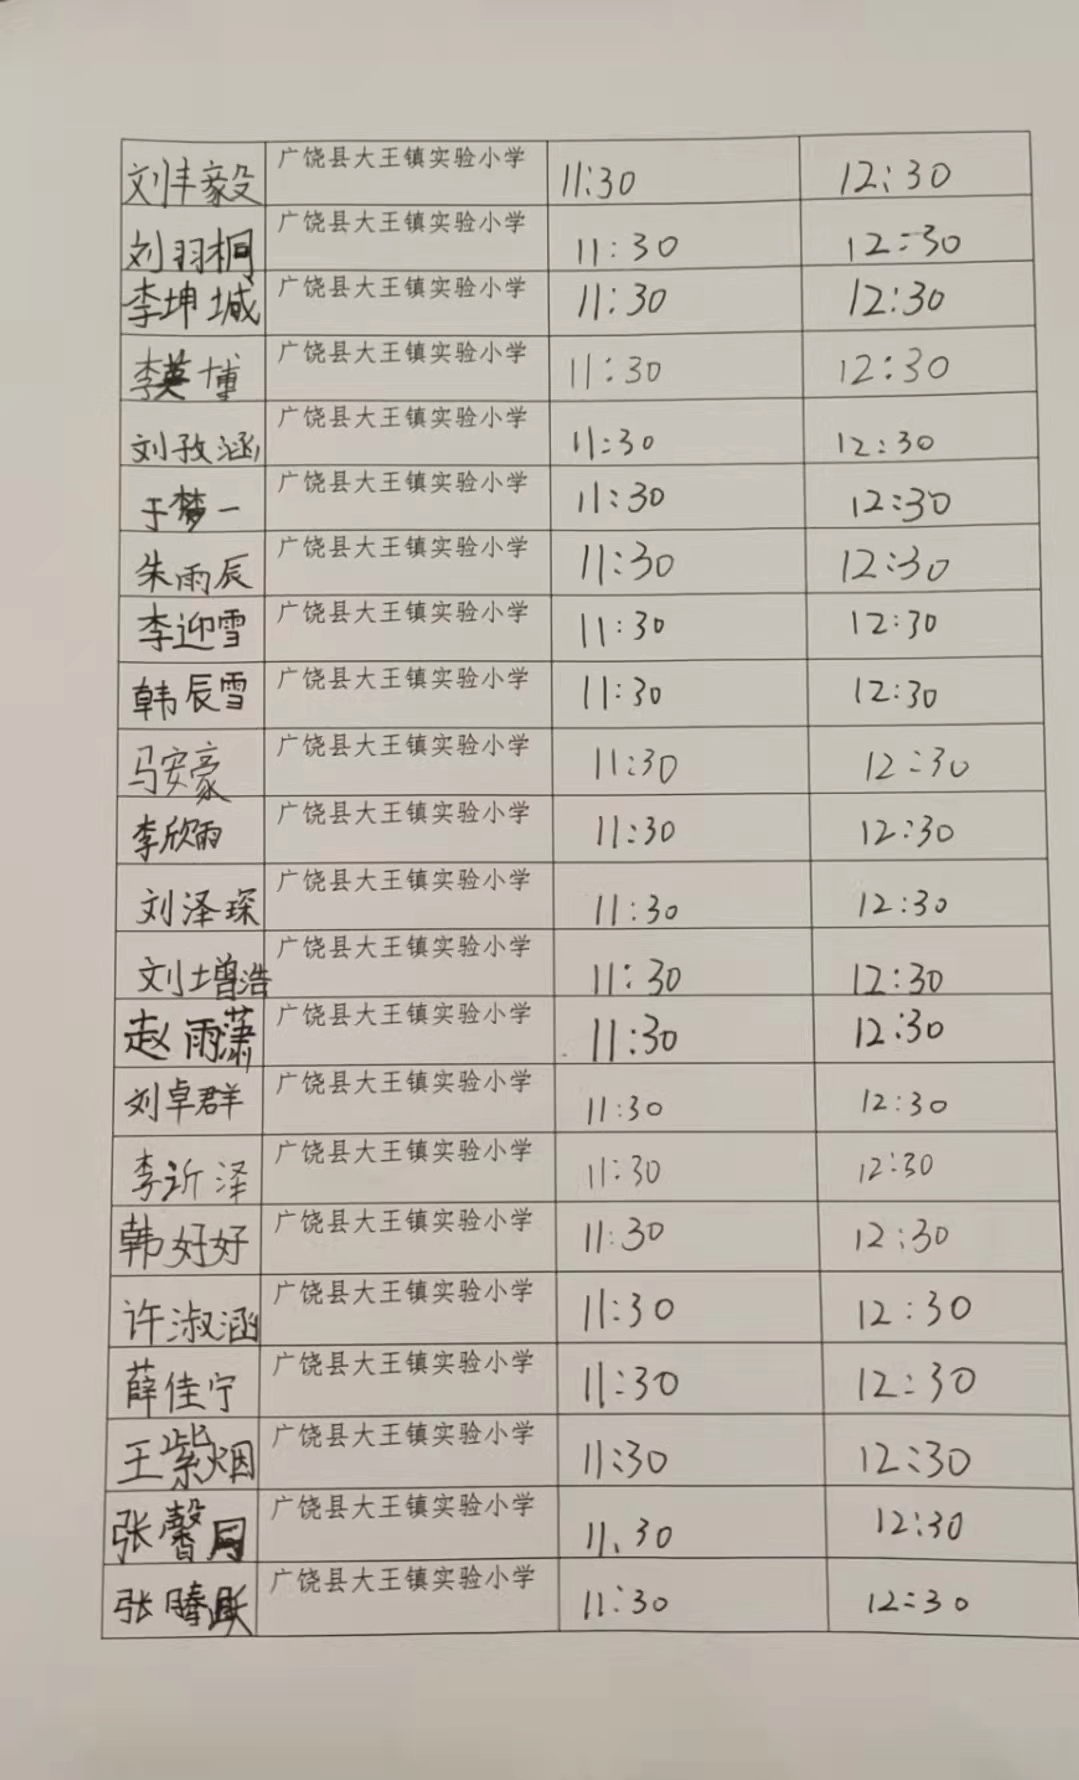 刘丰毅 广饶县大王镇实验小学 11:30 12:30
刘羽桐 广饶县大王镇实验小学 11:30 12:30
李坤城 广饶县大王镇实验小学 11:30 12:30
李英博 广饶县大王镇实验小学 11:30 12:30
刘孜涵 广饶县大王镇实验小学 11:30 12:30
于梦一 广饶县大王镇实验小学 11:30 12:30
朱雨辰 广饶县大王镇实验小学 11:30 12:30
李迎雪 广饶县大王镇实验小学 11:30 12:30
韩辰雪 广饶县大王镇实验小学 11:30 12:30
马安豪 广饶县大王镇实验小学 11:30 12:30
李欣雨 广饶县大王镇实验小学 11:30 12:30
刘泽琛 广饶县大王镇实验小学 11:30 12:30
刘增浩 广饶县大王镇实验小学 11:30 12:30
赵雨潇 广饶县大王镇实验小学 11:30 12:30
刘卓群 广饶县大王镇实验小学 11:30 12:30
李沂泽 广饶县大王镇实验小学 11:30 12:30
韩好好 广饶县大王镇实验小学 11:30 12:30
许淑涵 广饶县大王镇实验小学 11:30 12:30
薛佳宁 广饶县大王镇实验小学 11:30 12:30
王紫烟 广饶县大王镇实验小学 11:30 12:30
张馨 广饶县大王镇实验小学 11:30 12:30
张 广饶县大王镇实验小学 11:30 12:30